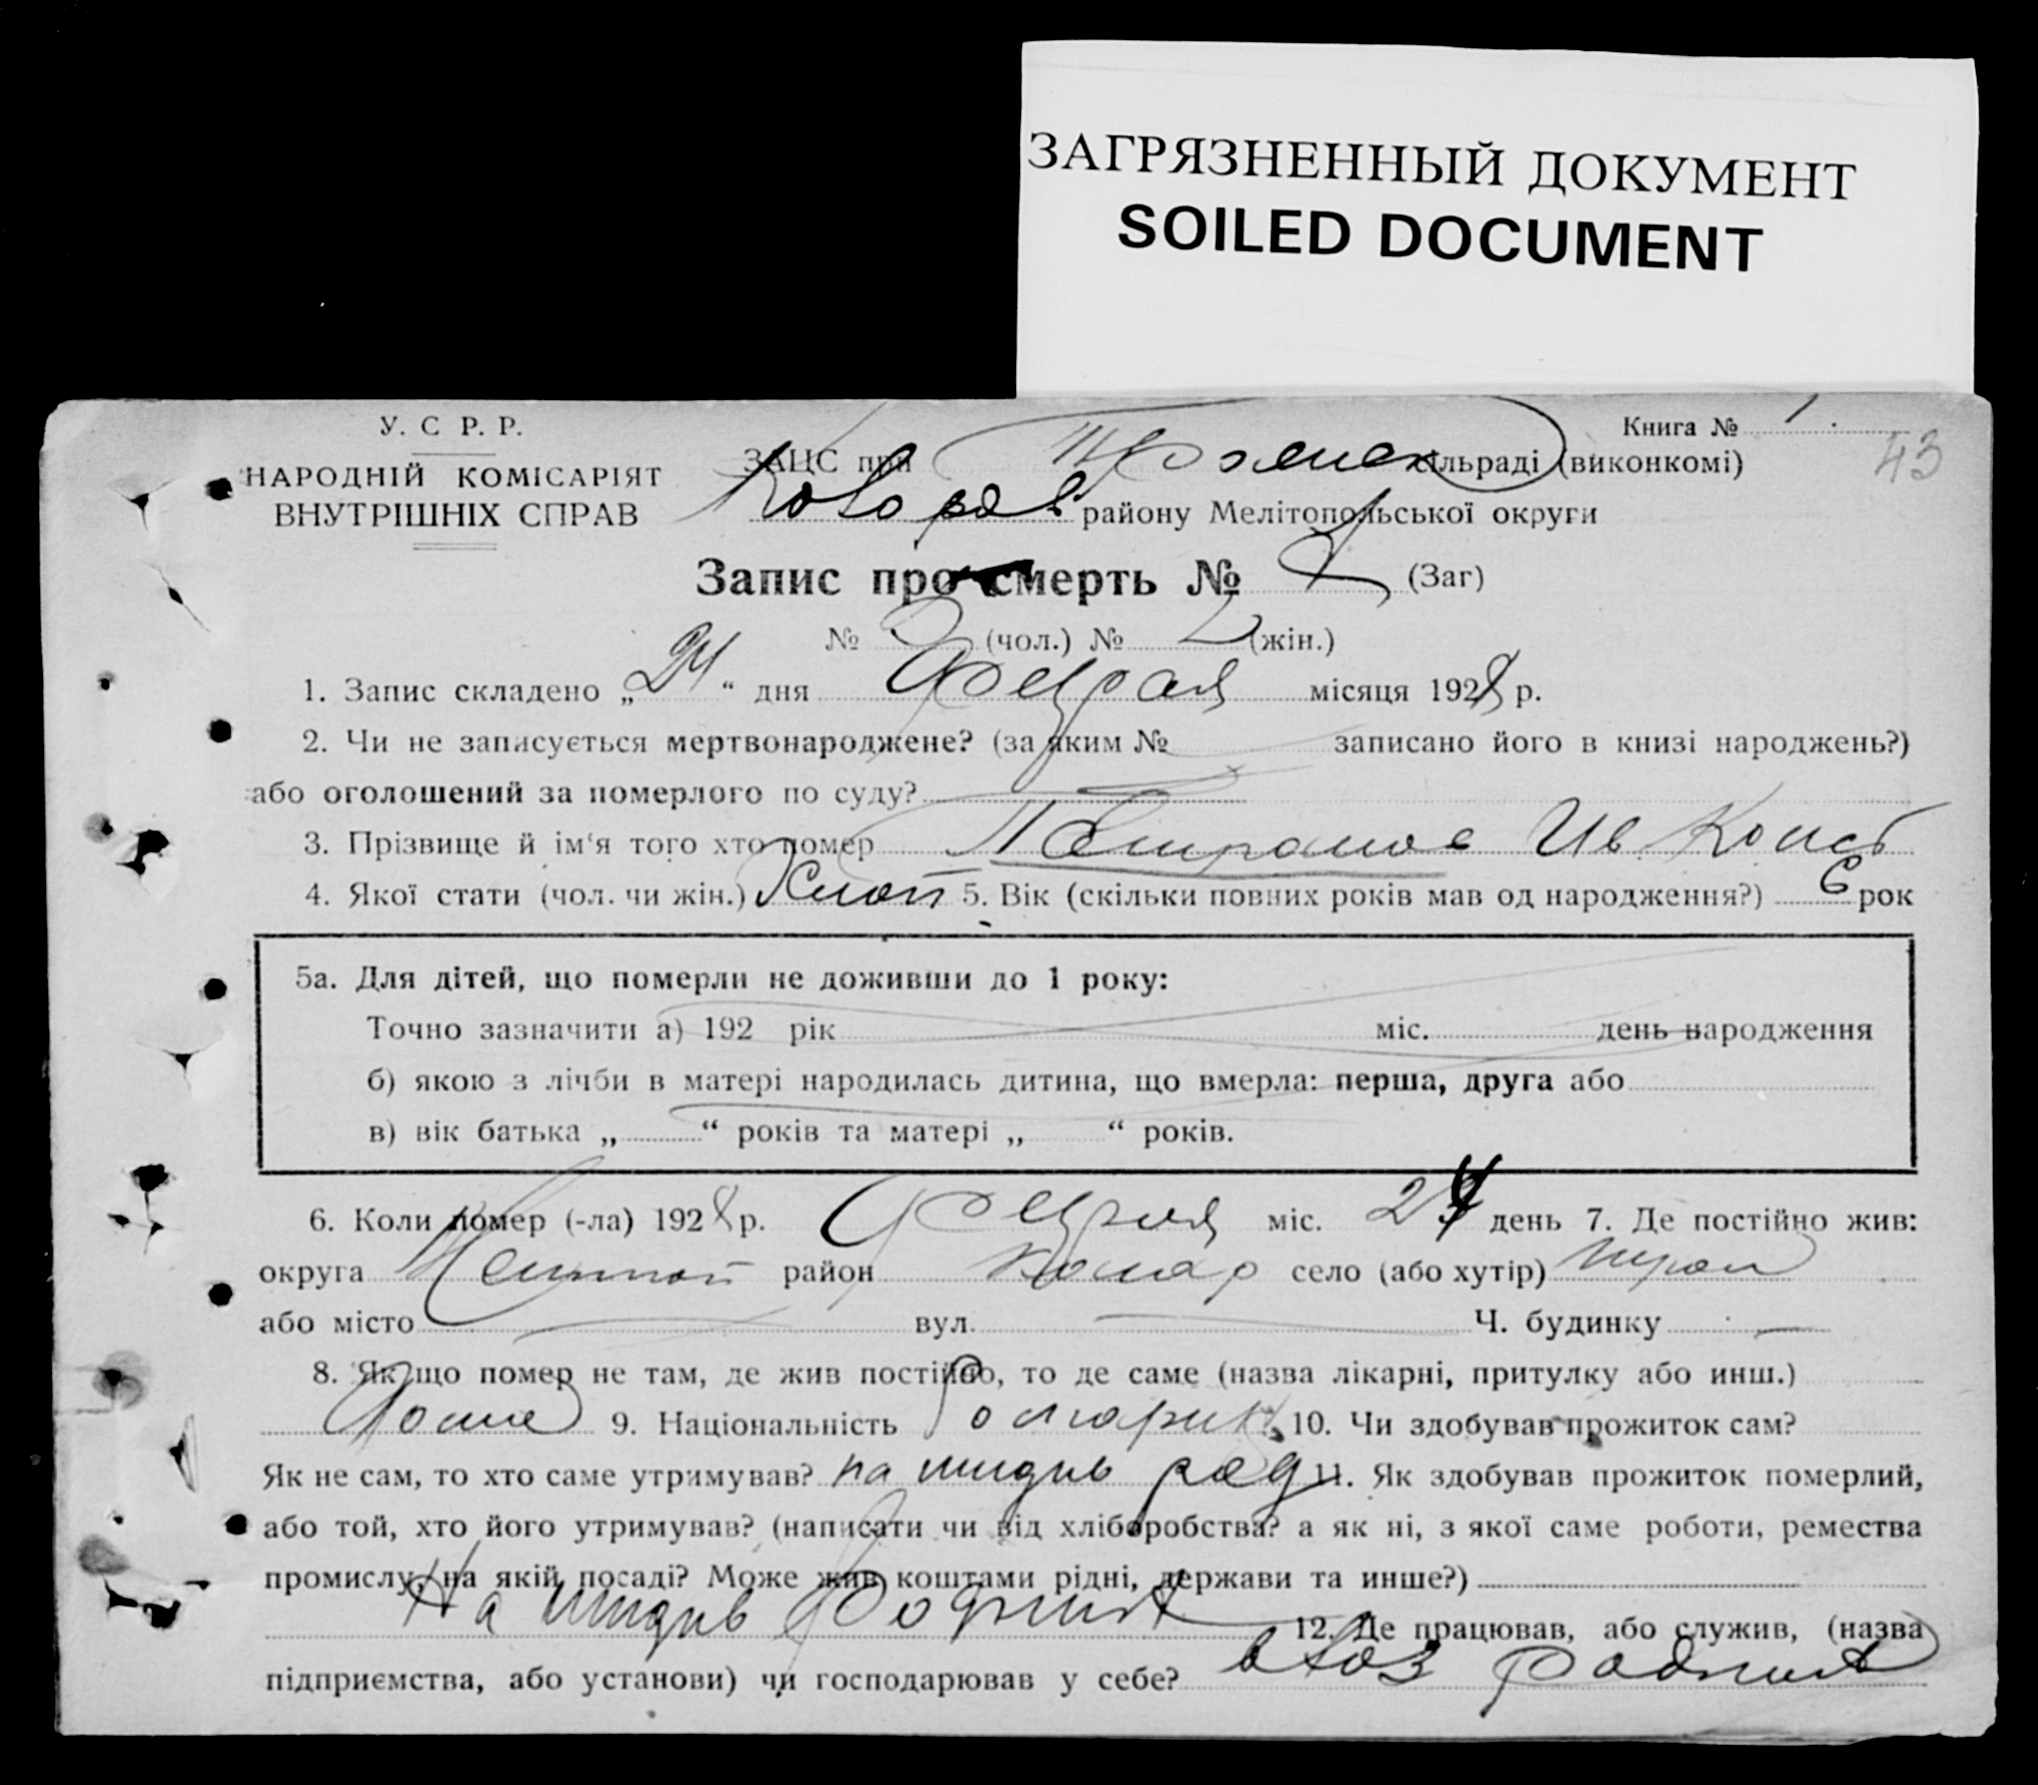 ЗАГРЯЗНЕННЫЙ ДОКУМЕНТ
SOILED DOCUMENT
У. С Р. Р.
Книга № 1
43
НАРОДНІЙ КОМІСАРІЯТ
ВНУТРІШНІХ СПРАВ
ЗАЦС при сільраді (виконкомі)
району Мелітопольської округи
Запис про смерть № (Заг)
№ (чол.) № (жін.)
1. Запис складено „24“ дня Февраля місяця 1928 р.
2. Чи не записується мертвонароджене? (за яким № записано його в книзі народжень?)
або оголошений за померлого по суду?
3. Прізвище й ім'я того хто помер Ив Конст
4. Якої стати (чол. чи жін.) 5. Вік (скільки повних років мав од народження?) 6 рок
5а. Для дітей, що померли не доживши до 1 року:
Точно зазначити а) 192 рік міс. день народження
б) якою з лічби в матері народилась дитина, що вмерла: перша, друга або
в) вік батька „ “ років та матері „ “ років.
6. Коли помер (-ла) 1928 р. Февраля міс. 24 день 7. Де постійно жив:
округа район село (або хутір)
або місто вул. Ч. будинку
8. Якщо помер не там, де жив постійно, то де саме (назва лікарні, притулку або инш.)
Доме 9. Національність 10. Чи здобував прожиток сам?
Як не сам, то хто саме утримував? на иждив род 11. Як здобував прожиток померлий,
або той, хто його утримував? (написати чи від хліборобства? а як ні, з якої саме роботи, ремества
промислу, на якій посаді? Може жив коштами рідні, держави та инше?)
На иждив Родител 12. Де працював, або служив, (назва
підприємства, або установи) чи господарював у себе? в хоз